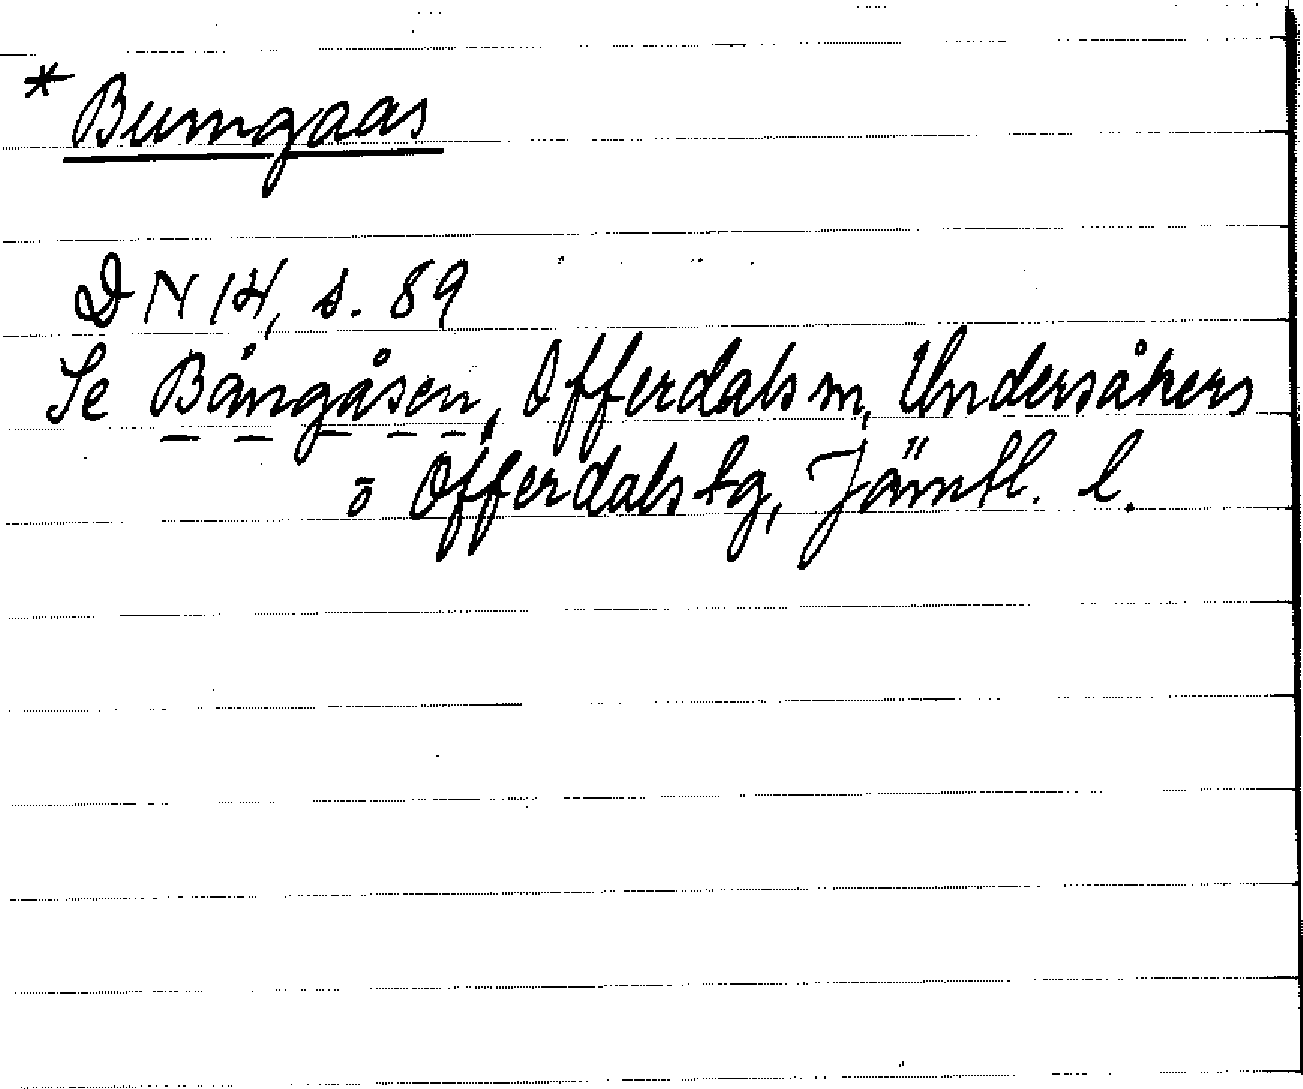 * Bumgaas
DN 14, s. 89
Se Bångåsen, Offerdals sn, Undersåkers
o Offerdals tg, Jämtl. l.